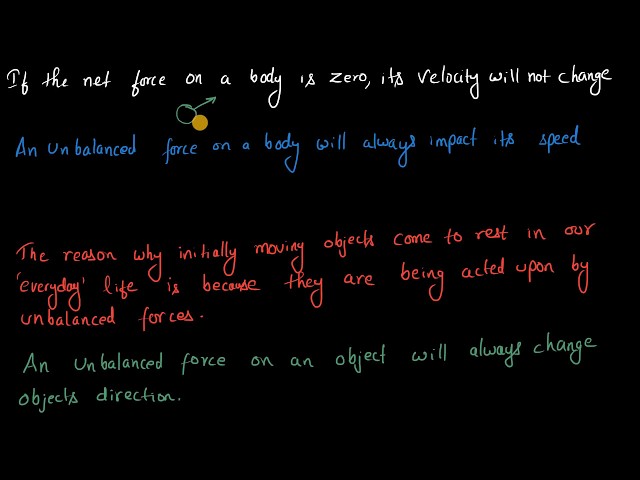 If the net force on a body is zero, its velocity will not change
An unbalanced force on a body will always impact its speed
The reason why initially moving objects come to rest in our
'everyday' life is because they are being acted upon by
unbalanced forces.
An unbalanced force on an object will always change
objects direction.